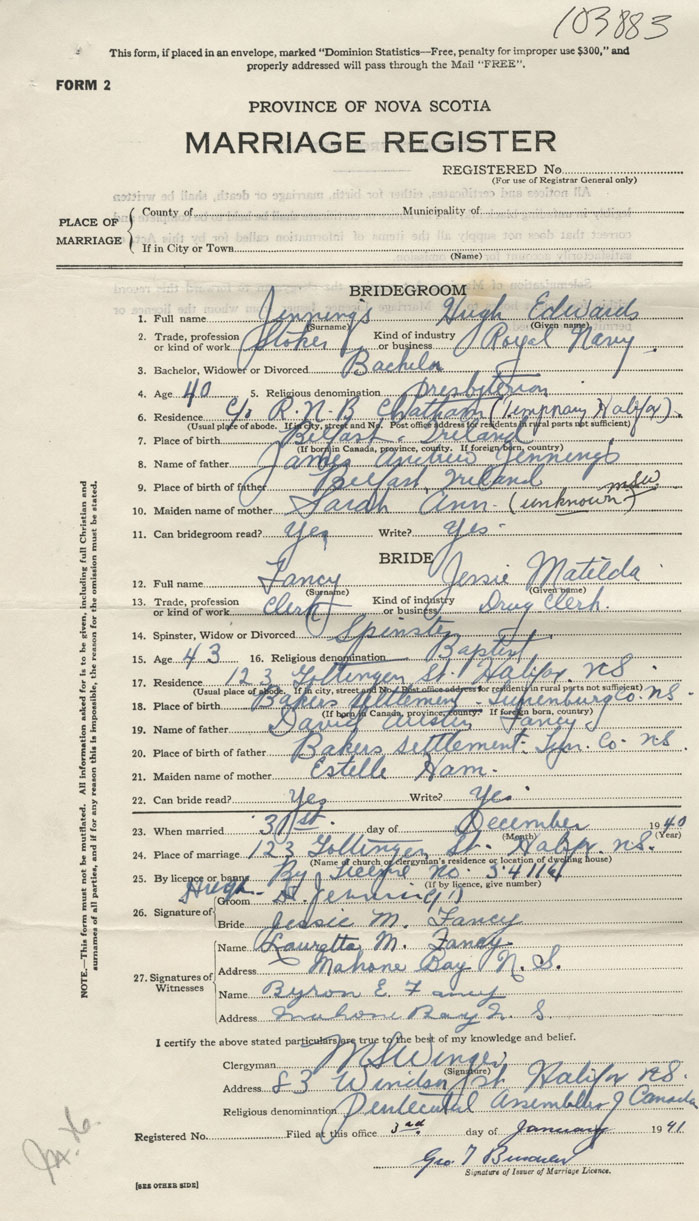 103883
This form, if placed in an envelope, marked "Dominion Statistics—Free, penalty for improper use $300," and
properly addressed will pass through the Mail "FREE".
FORM 2
PROVINCE OF NOVA SCOTIA
MARRIAGE REGISTER
REGISTERED No.
(For use of Registrar General only)
PLACE OF MARRIAGE
County of Municipality of
If in City or Town
(Name)
BRIDEGROOM
1. Full name Jennings Hugh Edwards
(Surname) (Given name)
2. Trade, profession or kind of work Stoker Kind of industry or business Royal Navy
3. Bachelor, Widower or Divorced Bachelor
4. Age 40 5. Religious denomination Presbyterian
6. Residence c/o R.N.B Chatham (Temporary Halifax).
(Usual place of abode. If in city, street and No. Post office address for residents in rural parts not sufficient)
7. Place of birth Belfast. Ireland
(If born in Canada, province, county. If foreign born, country)
8. Name of father James Andrew Jennings
9. Place of birth of father Belfast, Ireland
10. Maiden name of mother Sarah Ann. (unknown) msw
11. Can bridegroom read? Yes Write? Yes.
BRIDE
12. Full name Fancy Jessie Matilda
(Surname) (Given name)
13. Trade, profession or kind of work Clerk Kind of industry or business Drug Clerk.
14. Spinster, Widow or Divorced Spinster
15. Age 43 16. Religious denomination Baptist
17. Residence 123 Gottingen St. Halifax. N.S.
(Usual place of abode. If in city, street and No. Post office address for residents in rural parts not sufficient)
18. Place of birth Bakers Settlement - Lunenburg Co. N.S.
(If born in Canada, province, county. If foreign born, country)
19. Name of father David Fancy.
20. Place of birth of father Bakers Settlement. Lun. Co. N.S.
21. Maiden name of mother Estelle Ham.
22. Can bride read? Yes Write? Yes.
23. When married 31st. day of December 1940
(Month) (Year)
24. Place of marriage 123 Gottingen St. Halifax N.S.
(Name of church or clergyman's residence or location of dwelling house)
25. By licence or banns By License No. 54116
(If by licence, give number)
26. Signature of
Groom Hugh Jennings
Bride Jessie M. Fancy
27. Signatures of Witnesses
Name Lauretta M. Fancy
Address Mahone Bay N.S.
Name Byron E. Fancy
Address Mahone Bay N.S.
I certify the above stated particulars are true to the best of my knowledge and belief.
Clergyman M S Winger
(Signature)
Address 83 Windsor St Halifax N.S.
Religious denomination Pentecostal Assemblies of Canada
Registered No. Filed at this office 3rd day of January 1941
Geo. T
Signature of Issuer of Marriage Licence.
[SEE OTHER SIDE]
NOTE.—This form must not be mutilated. All information asked for is to be given, including full Christian and
surnames of all parties, and if for any reason this is impossible, the reason for the omission must be stated.